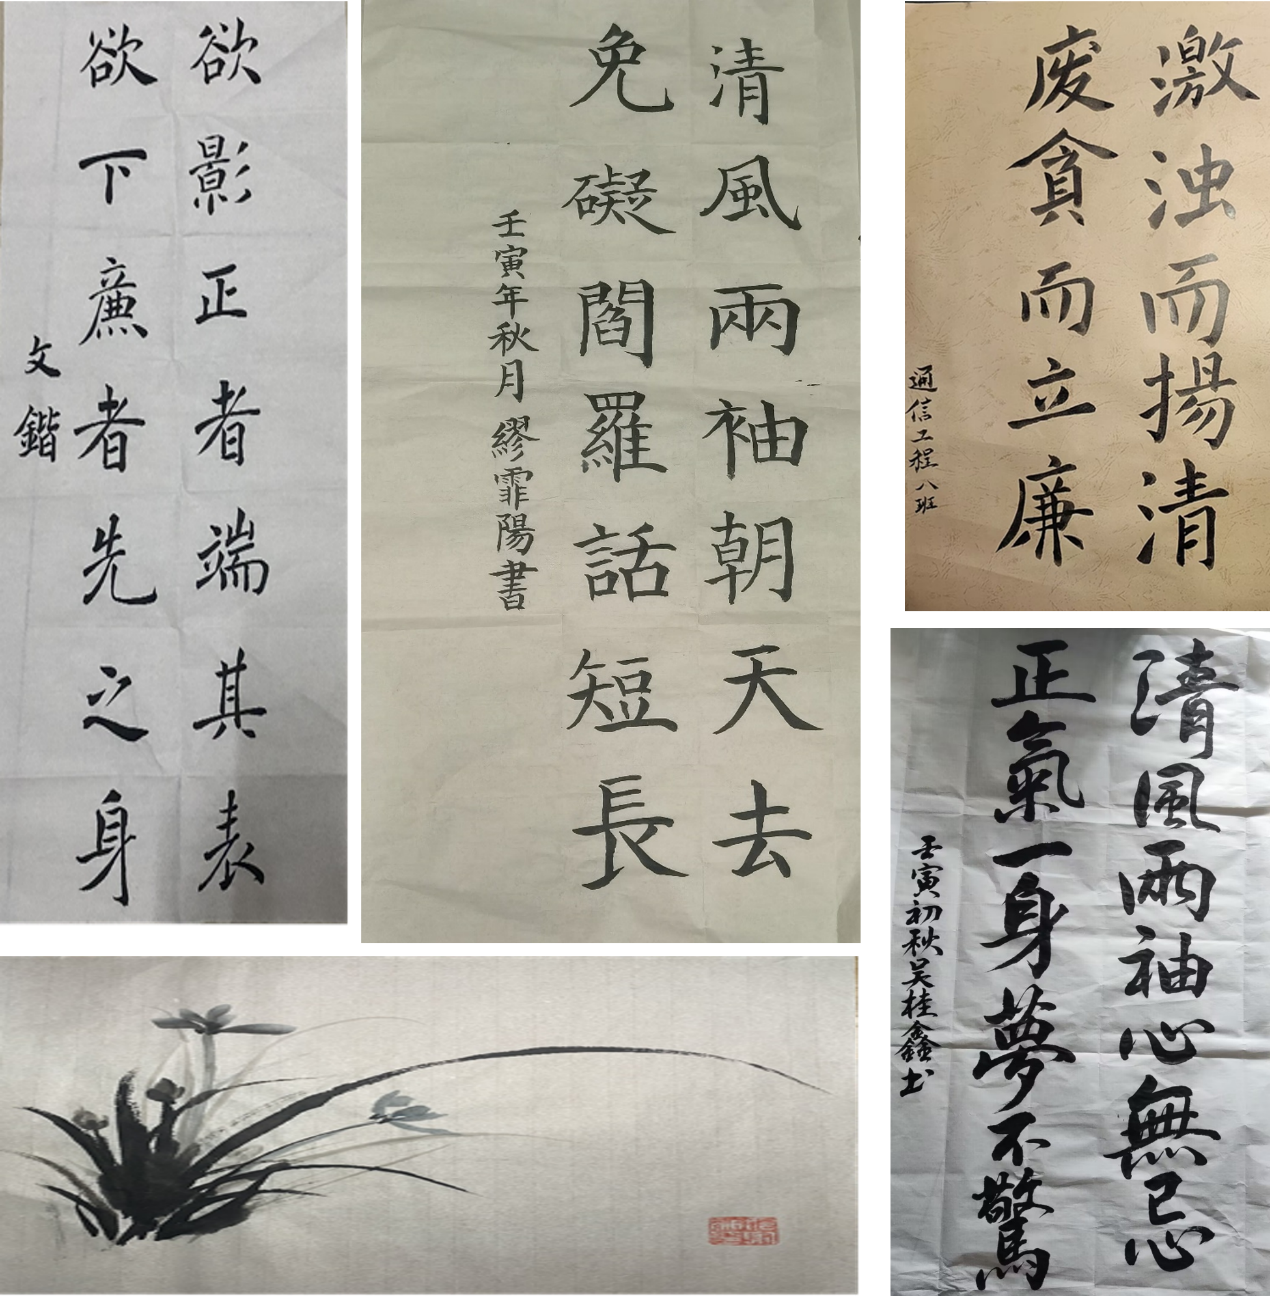 欲影正者端其表
欲下廉者先之身
文鍇
清風兩袖朝天去
免礙閻羅話短長
壬寅年秋月繆霏陽書
激浊而揚清
废貪而立廉
通信工程八班
清風兩袖心無忌
正氣一身夢不驚
壬寅初秋吴桂鑫书